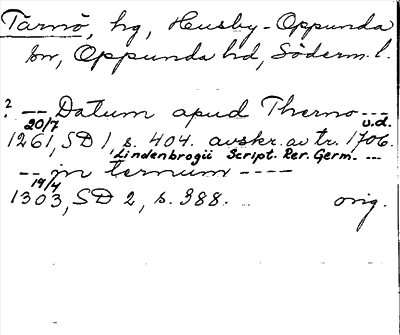 Tärnö, hg, Husby-Oppunda
sn, Oppunda hd, Söderm. l.
? -- Datum apud Therno ---
20/7 u.d.
1261, SD 1, s. 404. avskr. av tr. 1706.
Lindenbrogii Script. Rer. Germ. ---
-- jn ternum ----
19/4
1303, SD 2, s. 388. orig.